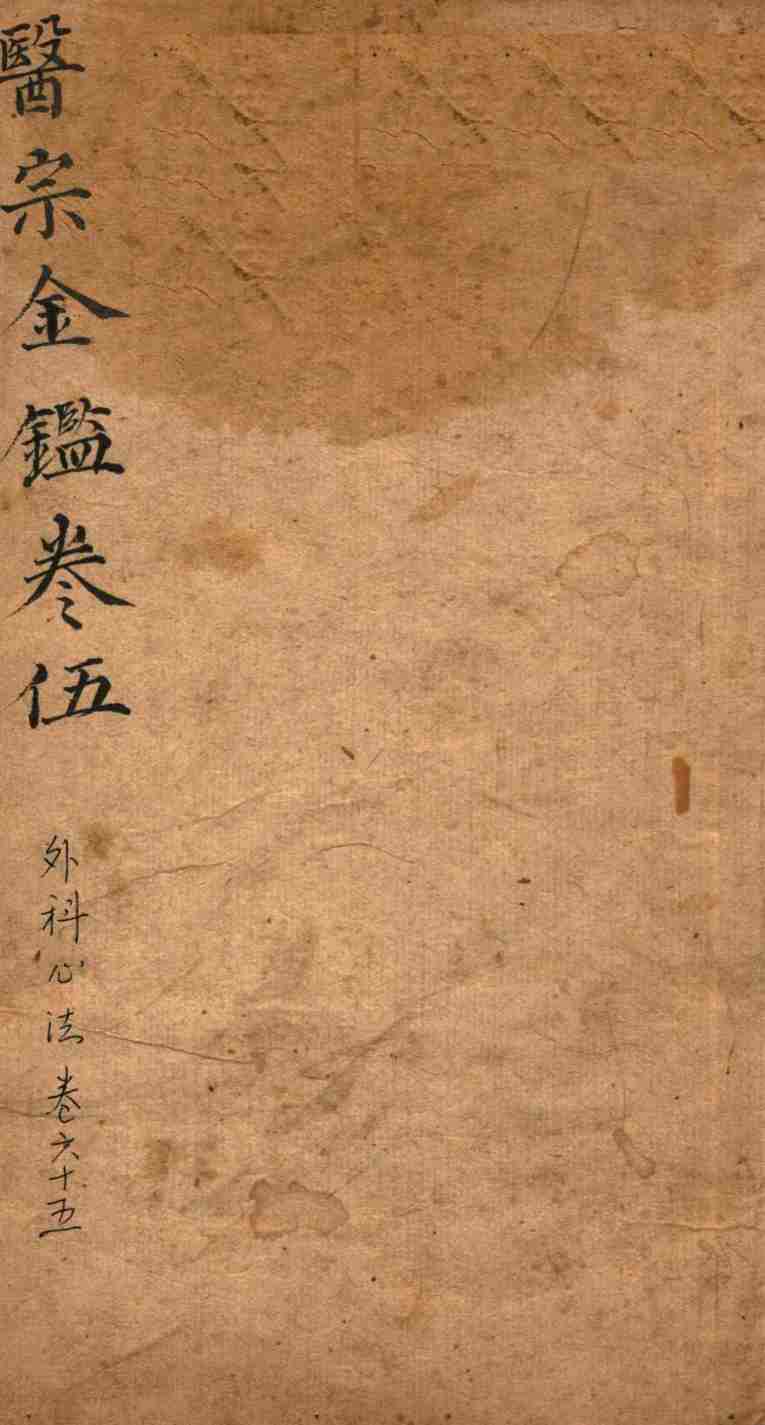 醫宗金鑑卷伍
外科心法卷六十五